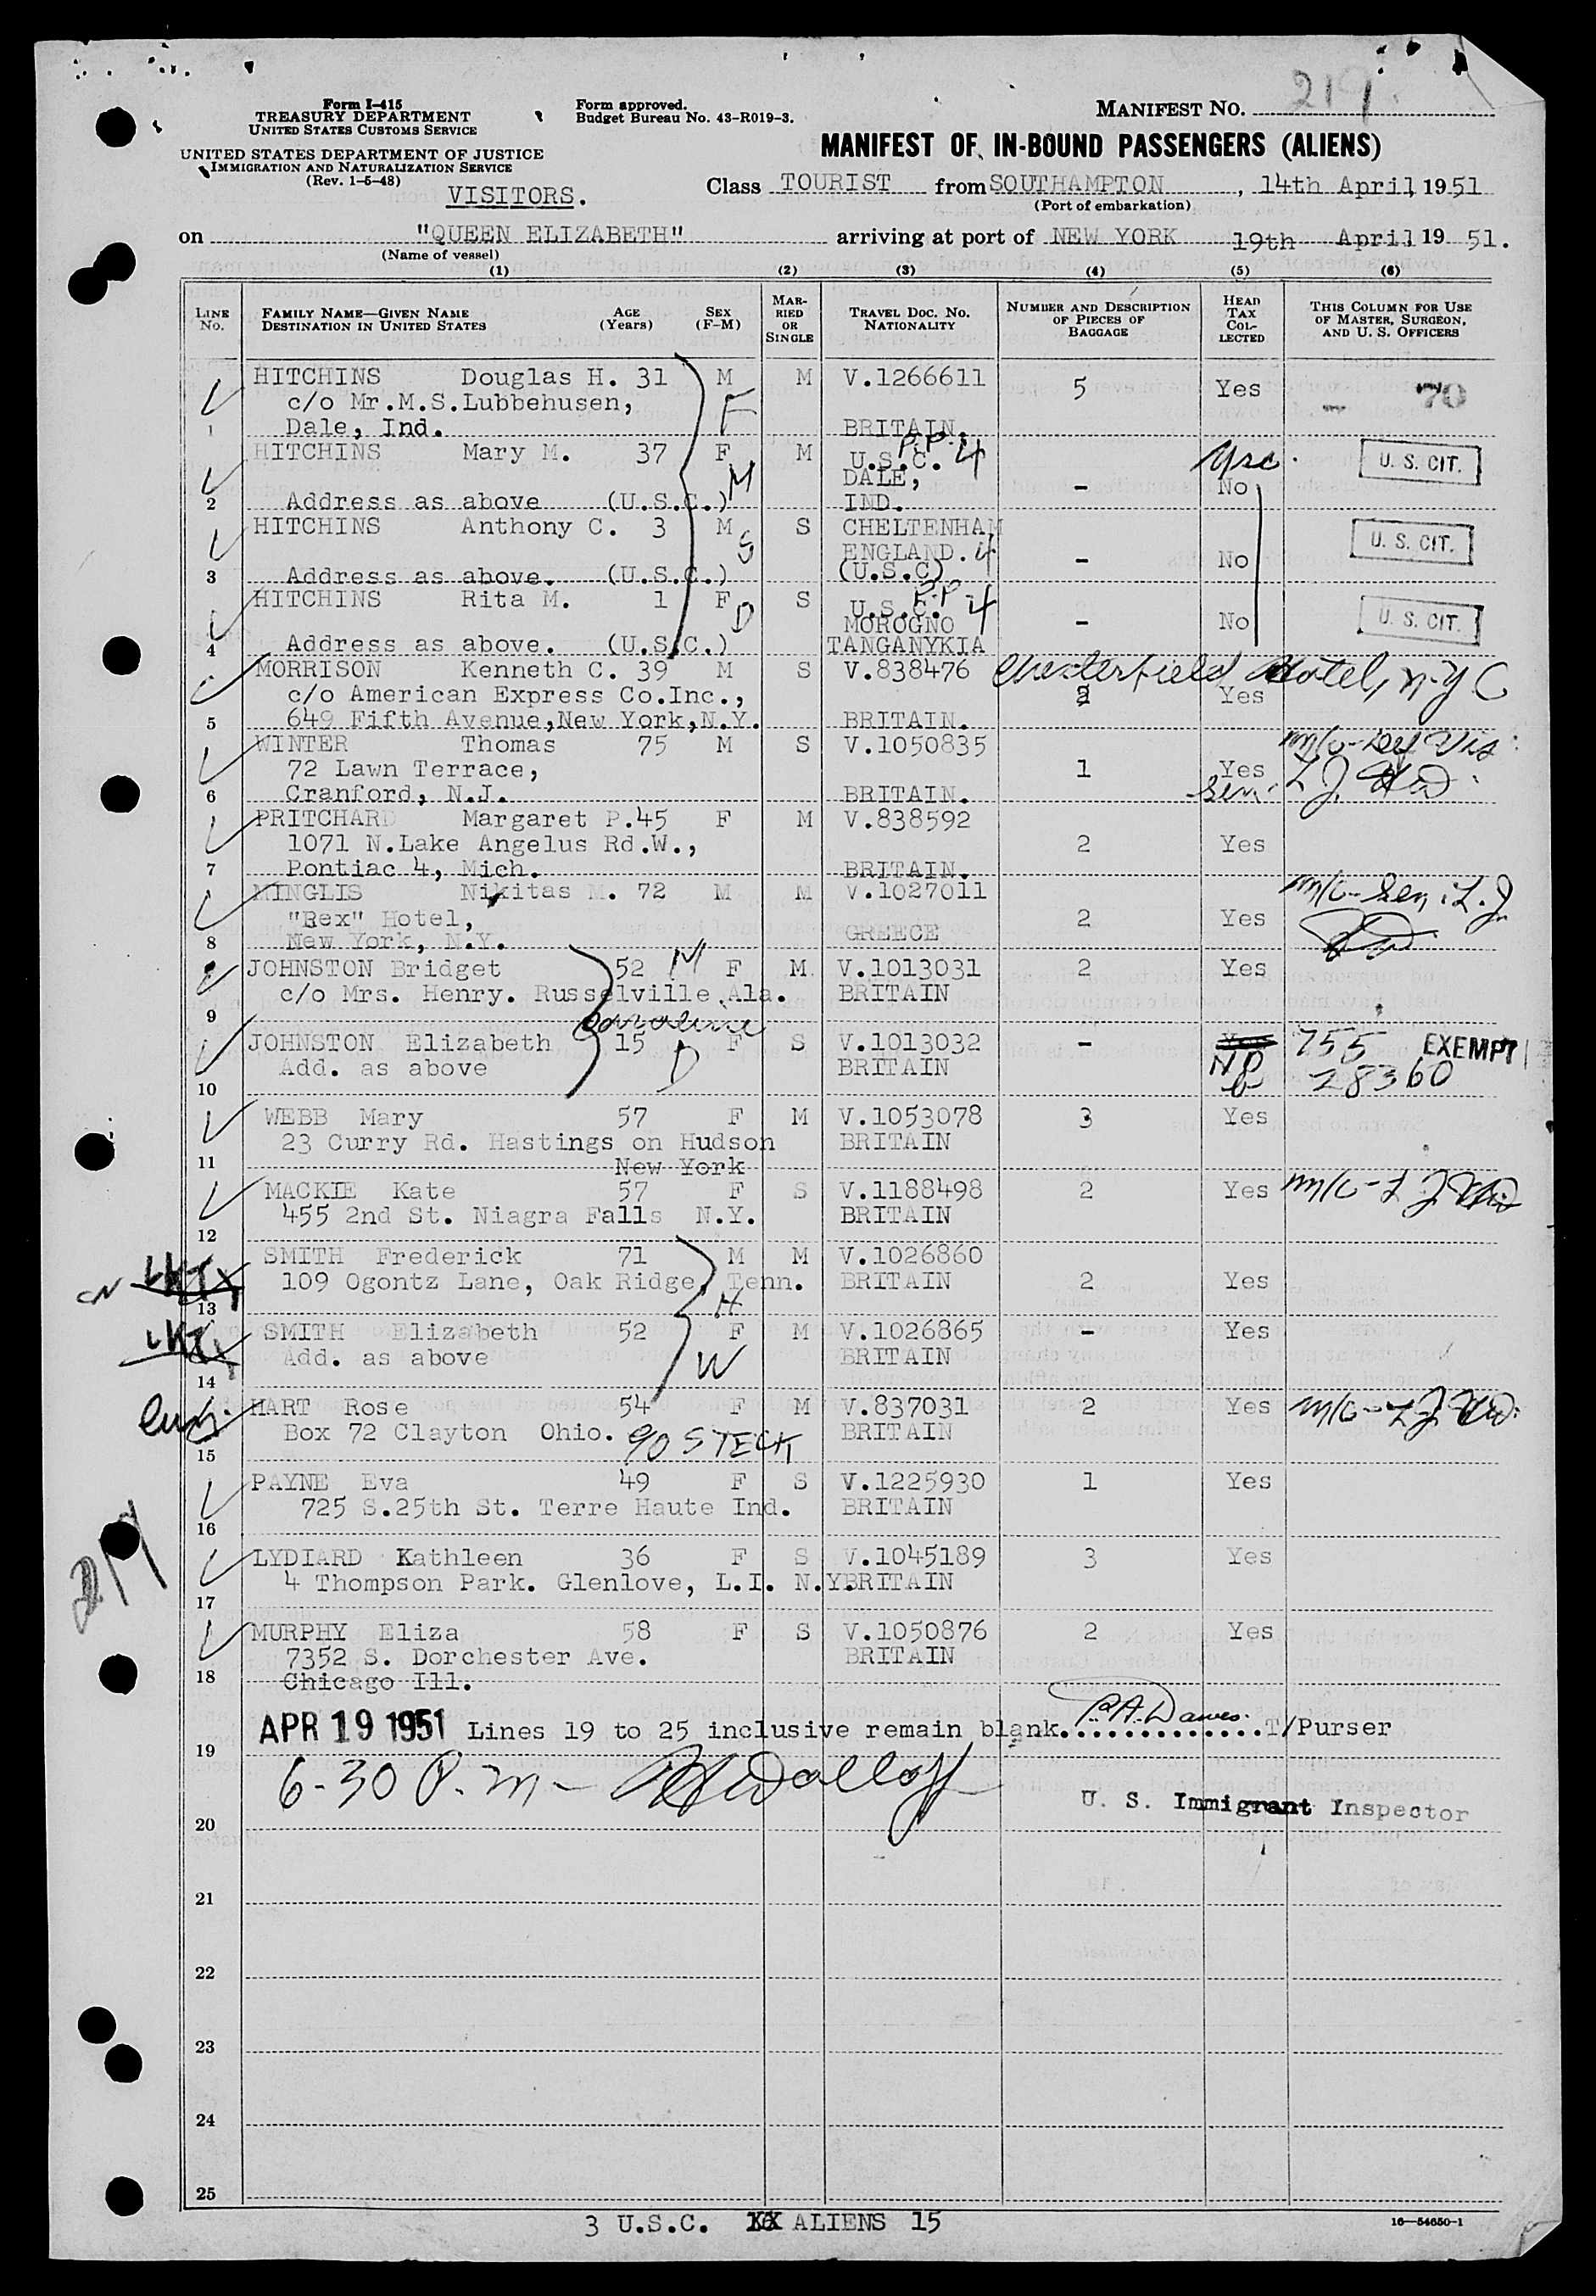 Form I-415
TREASURY DEPARTMENT
UNITED STATES CUSTOMS SERVICE
Form approved.
Budget Bureau No. 43-R019-3.
MANIFEST NO. 219
UNITED STATES DEPARTMENT OF JUSTICE
IMMIGRATION AND NATURALIZATION SERVICE
(Rev. 1-5-48)
MANIFEST OF IN-BOUND PASSENGERS (ALIENS)
VISITORS.
Class TOURIST from SOUTHAMPTON, 14th April, 1951
(Port of embarkation)
on "QUEEN ELIZABETH" arriving at port of NEW YORK 19th April, 19 51.
(Name of vessel)
(1) (2) (3) (4) (5) (6)
LINE No.
FAMILY NAME—GIVEN NAME
DESTINATION IN UNITED STATES
AGE (Years)
SEX (F-M)
MARRIED OR SINGLE
TRAVEL DOC. NO.
NATIONALITY
NUMBER AND DESCRIPTION OF PIECES OF BAGGAGE
HEAD TAX COLLECTED
THIS COLUMN FOR USE OF MASTER, SURGEON, AND U. S. OFFICERS
HITCHINS Douglas H. 31 M M V.1266611 5 Yes 70
c/o Mr.M.S.Lubbehusen, F
1 Dale, Ind. BRITAIN.
HITCHINS Mary M. 37 F M U.S.C. P.P. 4 U. S. CIT.
M DALE, - No
2 Address as above (U.S.C.) IND.
HITCHINS Anthony C. 3 M S CHELTENHAM U. S. CIT.
S ENGLAND. 4 - No
3 Address as above. (U.S.C.) (U.S.C)
HITCHINS Rita M. 1 F S U.S.C. P.P. 4 U. S. CIT.
D MOROGNO - No
4 Address as above. (U.S.C.) TANGANYKIA
MORRISON Kenneth C. 39 M S V.838476 Chesterfield Hotel, N.Y C
c/o American Express Co.Inc., 2 Yes
5 649 Fifth Avenue,New York,N.Y. BRITAIN.
WINTER Thomas 75 M S V.1050835
72 Lawn Terrace, 1 Yes
6 Cranford, N.J. BRITAIN. Sen.
PRITCHARD Margaret P.45 F M V.838592
1071 N.Lake Angelus Rd.W., 2 Yes
7 Pontiac 4, Mich. BRITAIN.
MINGLIS Nikitas M. 72 M M V.1027011 m/o-Sen.
"Rex" Hotel, 2 Yes
8 New York, N.Y. GREECE
JOHNSTON Bridget 52 M F M V.1013031 2 Yes
c/o Mrs. Henry. Russelville Ala. BRITAIN
9 Caroline
JOHNSTON Elizabeth 15 F S V.1013032 - Yes 755 EXEMPT
Add. as above D BRITAIN 28360
10
WEBB Mary 57 F M V.1053078 3 Yes
23 Curry Rd. Hastings on Hudson BRITAIN
11 New York
MACKIE Kate 57 F S V.1188498 2 Yes
455 2nd St. Niagra Falls N.Y. BRITAIN
12
SMITH Frederick 71 M M V.1026860
109 Ogontz Lane, Oak Ridge, Tenn. BRITAIN 2 Yes
13 H
SMITH Elizabeth 52 F M V.1026865 - Yes
Add. as above W BRITAIN
14
HART Rose 54 F M V.837031 2 Yes
Box 72 Clayton Ohio. 90 STECK BRITAIN
15
PAYNE Eva 49 F S V.1225930 1 Yes
725 S.25th St. Terre Haute Ind. BRITAIN
16
LYDIARD Kathleen 36 F S V.1045189 3 Yes
4 Thompson Park. Glenlove, L.I. N.Y. BRITAIN
17
MURPHY Eliza 58 F S V.1050876 2 Yes
7352 S. Dorchester Ave. BRITAIN
18 Chicago Ill.
219
APR 19 1951 Lines 19 to 25 inclusive remain blank. P.A.Dawes. T/Purser
19
6-30 P.m-
U. S. Immigrant Inspector
20
21
22
23
24
25
3 U.S.C. ALIENS 15
16—54650-1